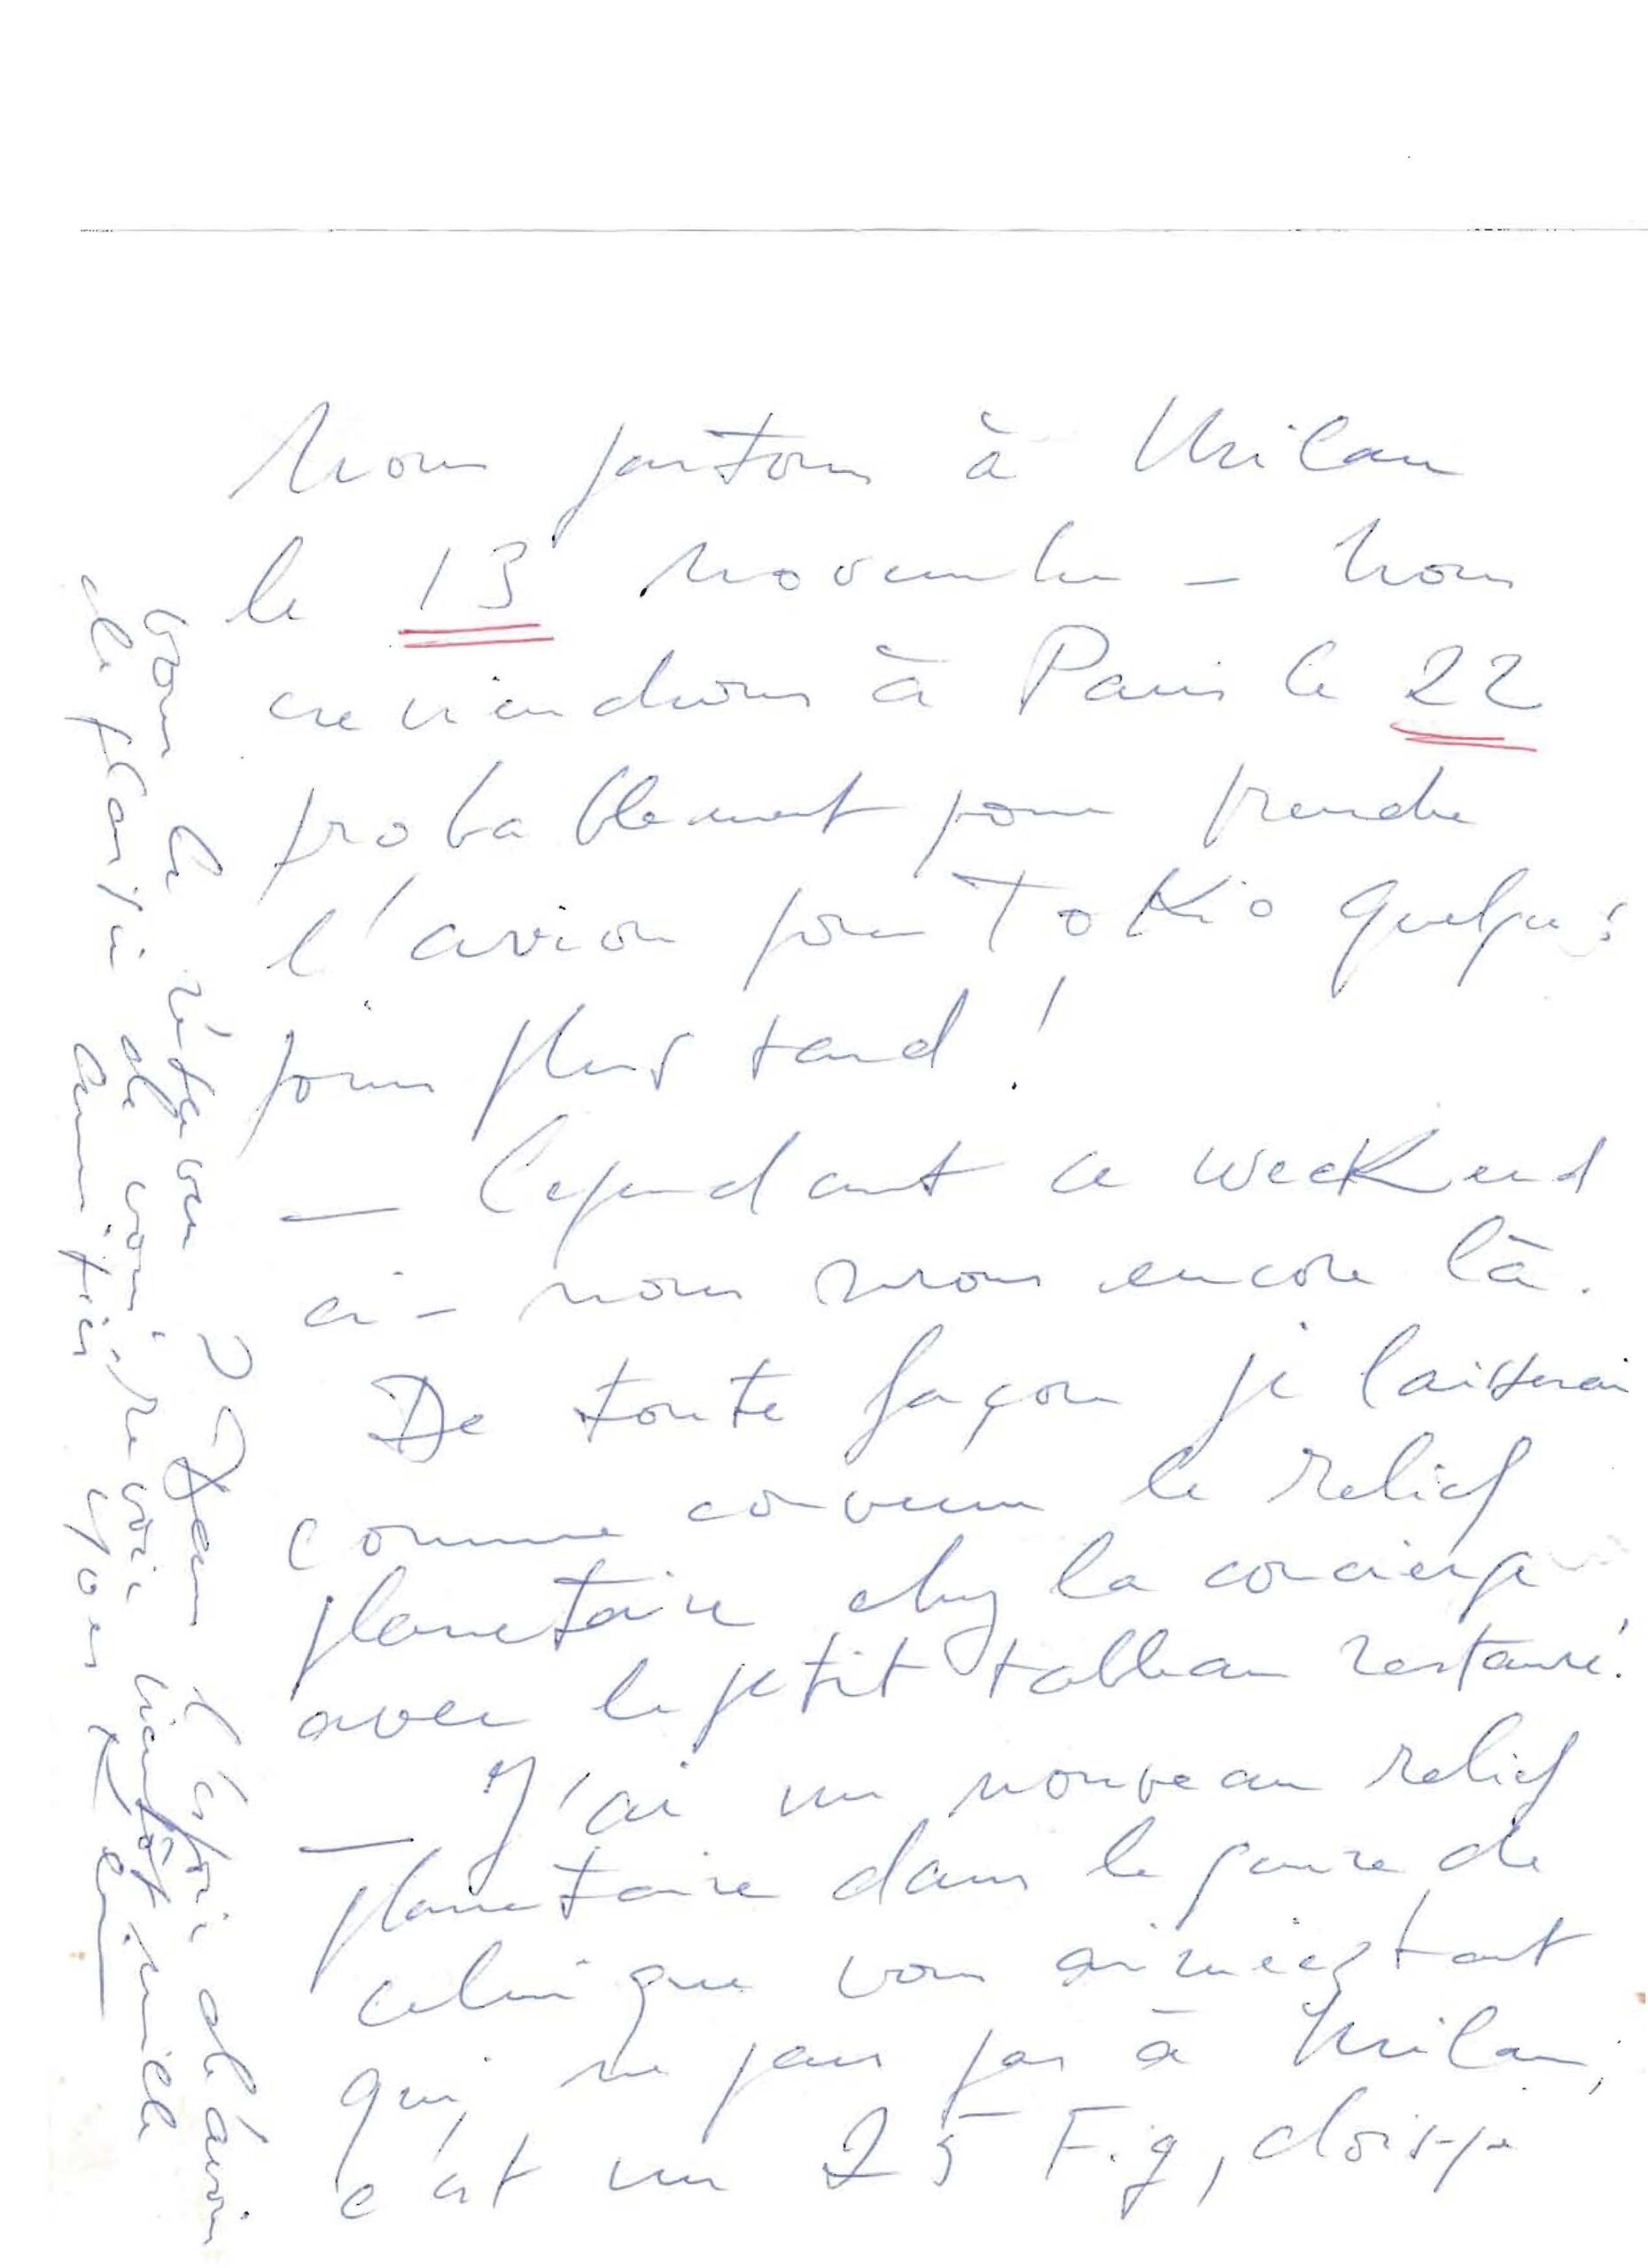 Nous partons à Milan
le 13 novembre – nous
reviendrons à Paris le 22
probablement pour prendre
l'avion pour Tokio quelques
jours plus tard !
— Cependant ce weekend
ci – nous serons encore là.
De toute façon je laisserai
comme convenu le relief
planetaire chez la concierge
avec le petit tableau restauré.
— J'ai un nouveau relief
planetaire dans le genre de
celui que vous aimiez tant
qui, ne pars pas à Milan,
c'est un 25 Fig, dois-je
vous le réserver ?
Dans l'espoir d'avoir
le plaisir de vous revoir bientôt, mille
amitiés